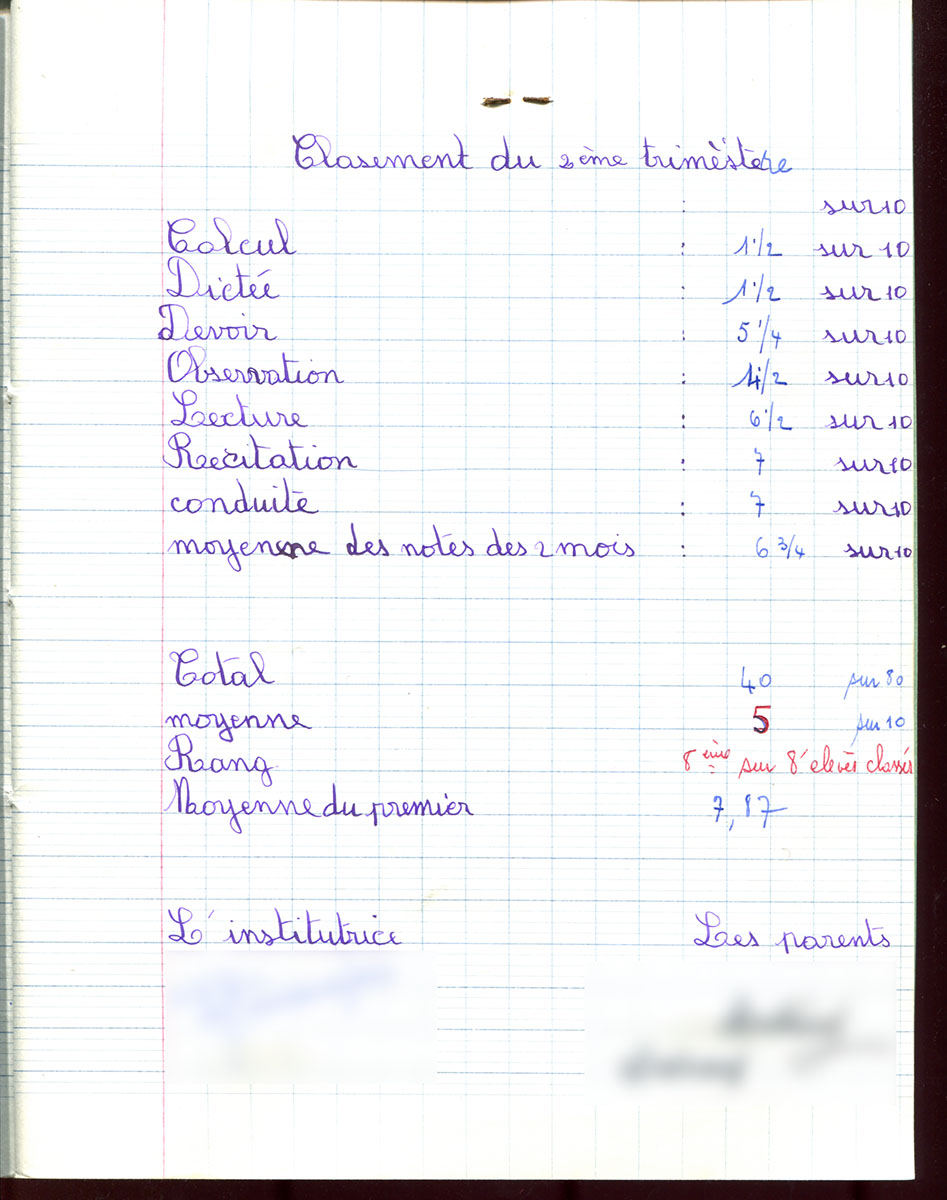 Clasement du 2ème trimèstere
: sur 10
Calcul : 1 1/2 sur 10
Dictée : 1 1/2 sur 10
Devoir : 5 1/4 sur 10
Observation : 4 1/2 sur 10
Lecture : 6 1/2 sur 10
Recitation : 7 sur 10
conduite : 7 sur 10
moyenne des notes des 2 mois : 6 3/4 sur 10
Total 40 sur 80
moyenne 5 sur 10
Rang 8ème sur 8 élevès classés
Moyenne du premier 7,87
L'institutrice Les parents